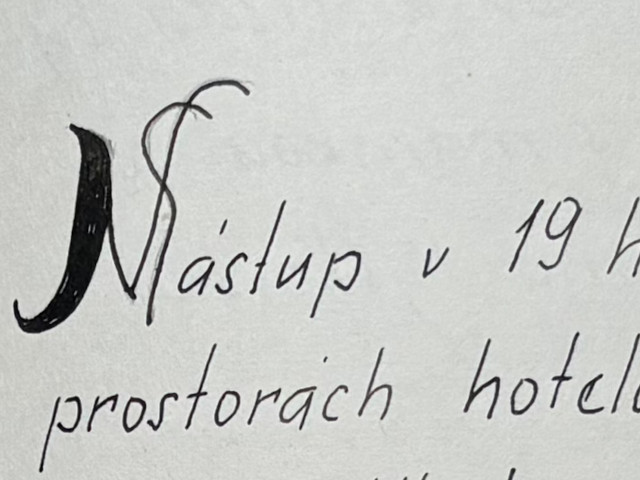 Nástup v 19 h
prostorách hotelo